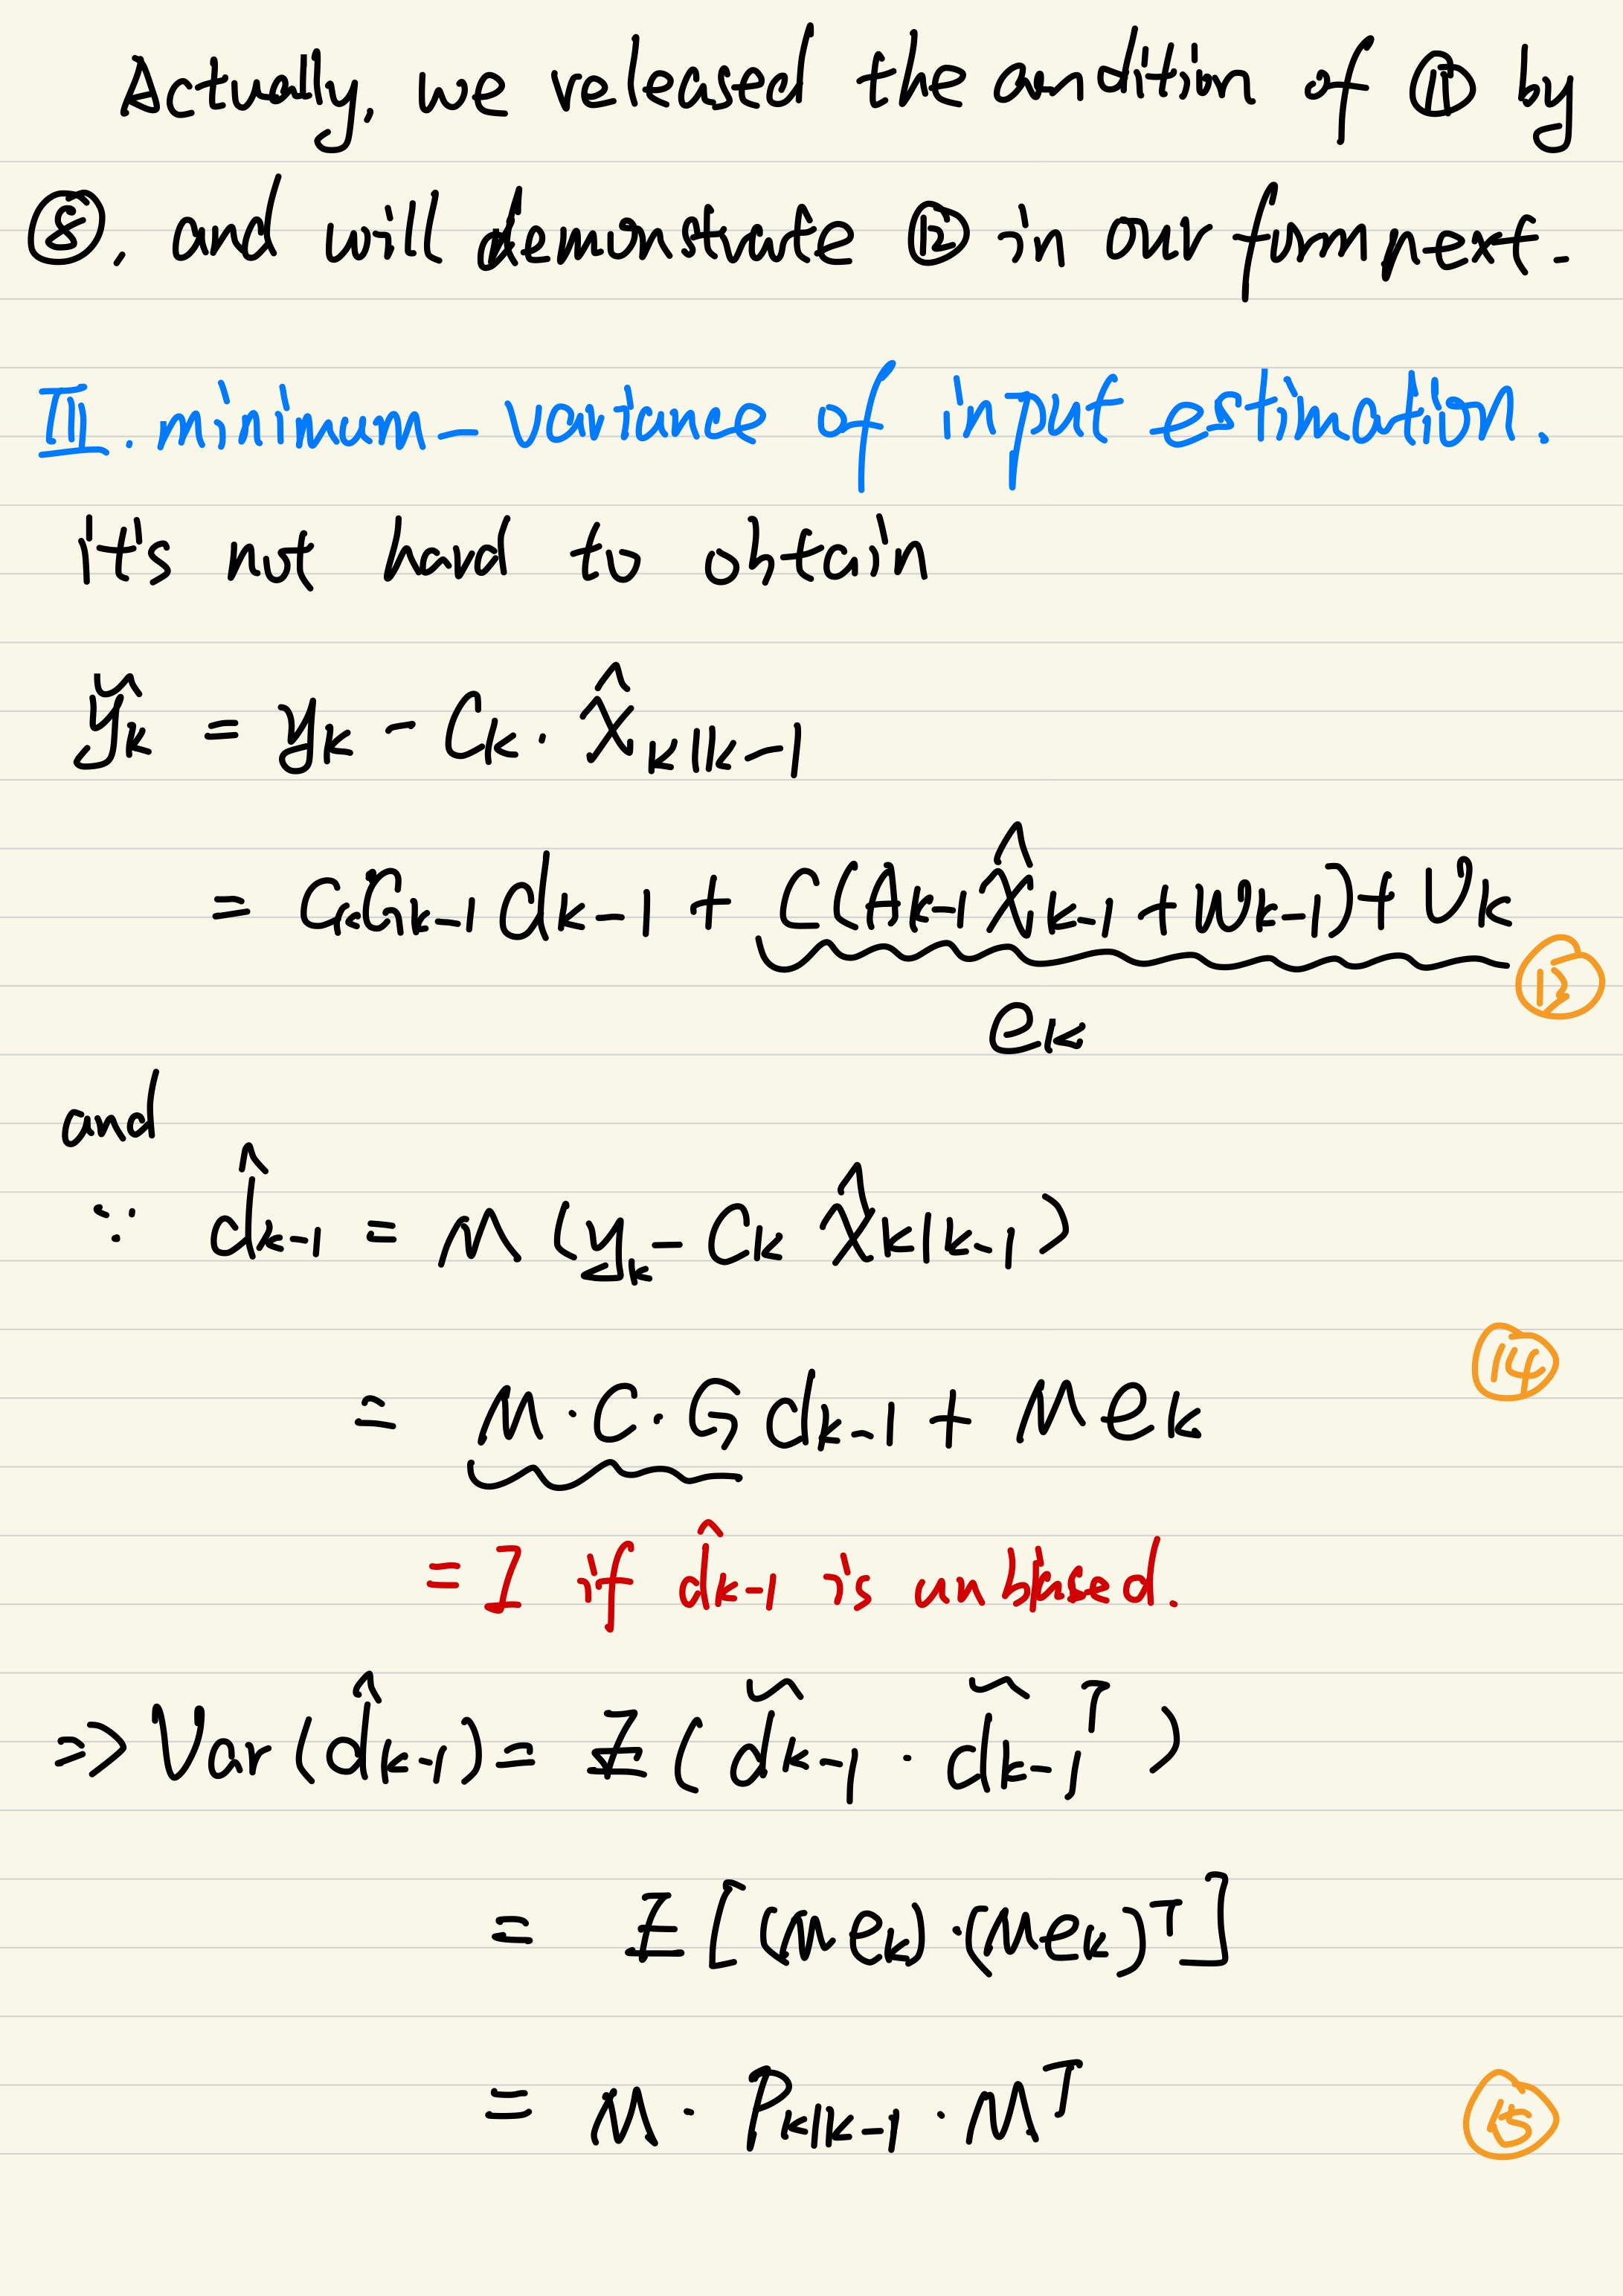 Actually, we released the condition of ⑪ by
⑧, and will demonstrate ⑫ in our form next.
II. minimum-variance of input estimation.
it's not hard to obtain
ỹₖ = yₖ - Cₖ · x̂ₖ|ₖ₋₁
= CₖGₖ₋₁dₖ₋₁ + C(Aₖ₋₁x̂ₖ₋₁ + wₖ₋₁) + vₖ
eₖ
⑬
and
∵ d̂ₖ₋₁ = M(yₖ - Cₖ x̂ₖ|ₖ₋₁)
= M·C·G dₖ₋₁ + Meₖ
⑭
= I if d̂ₖ₋₁ is unbiased.
⇒ Var(d̂ₖ₋₁) = E(d̃ₖ₋₁ · d̃ₖ₋₁ᵀ)
= E[(Meₖ)·(Meₖ)ᵀ]
= M · Pₖ|ₖ₋₁ · Mᵀ
⑮